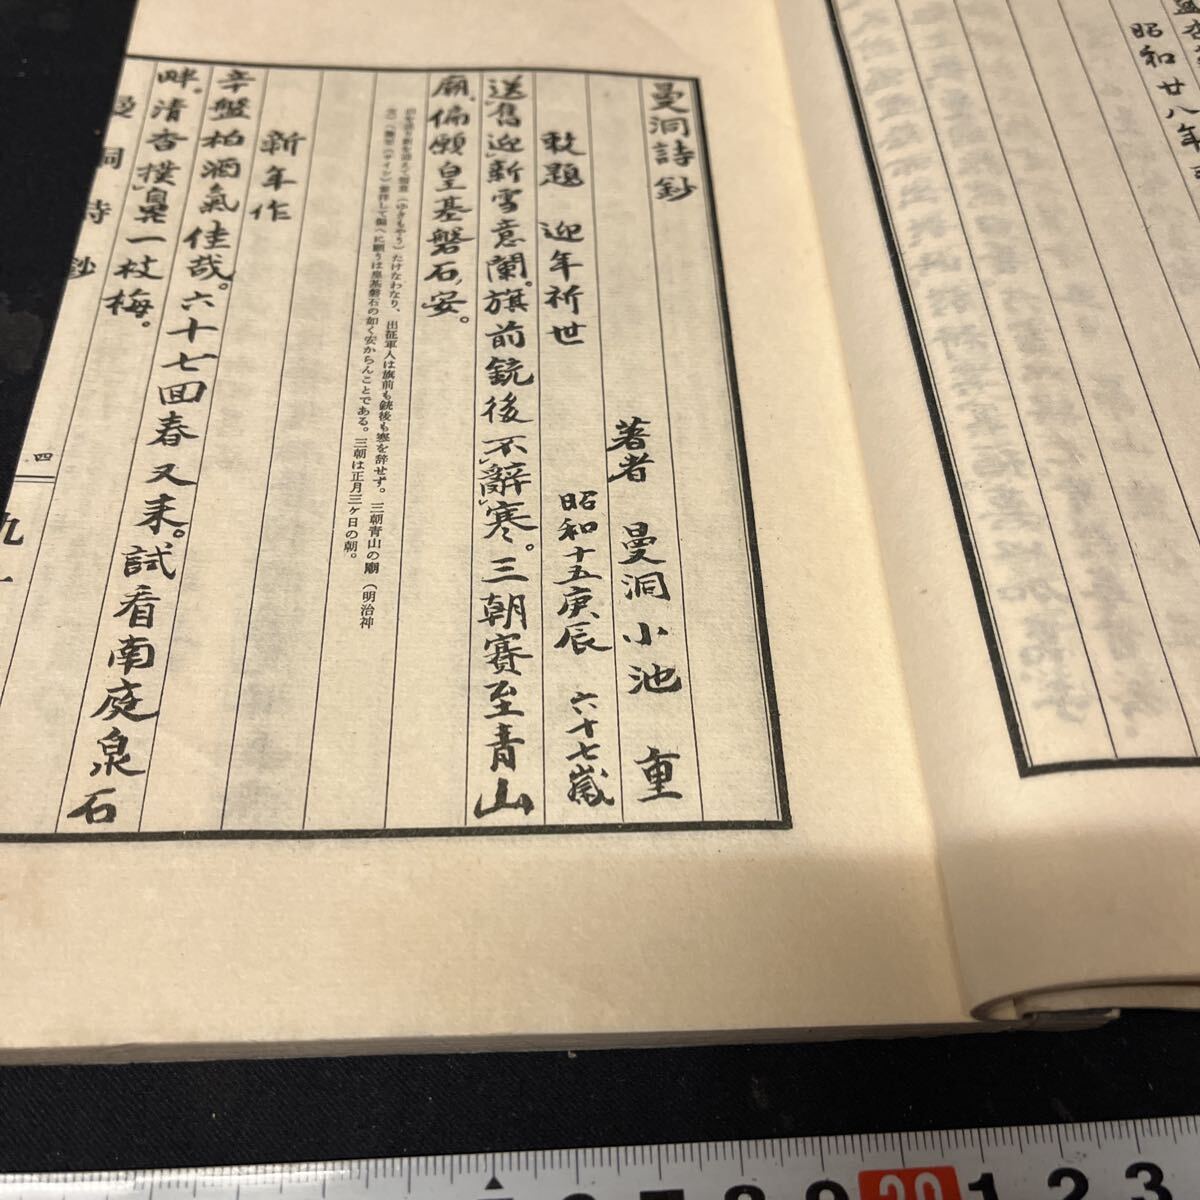 昭和廿八年
曼洞詩鈔
著者 曼洞小池 重
敢題 迎年祈世 昭和十五庚辰 六十七歳
送舊迎新雪意闌。旗前銃後不辭寒。三朝賽至青山
廟、偏願皇基磐石安。
たけなわなり、出征軍人は旗前も銃後も寒を辞せず。三朝青山の廟（明治神
賽拝して偏へに願うは皇基磐石の如く安からんことである。三朝は正月三ヶ日の朝。
新年作
辛盤柏酒氣佳哉。六十七回春又来。試看南庭泉石
畔。清香撲鼻一枝梅。
曼洞詩鈔
四
九一
6 7 8 9 20 1 2 3